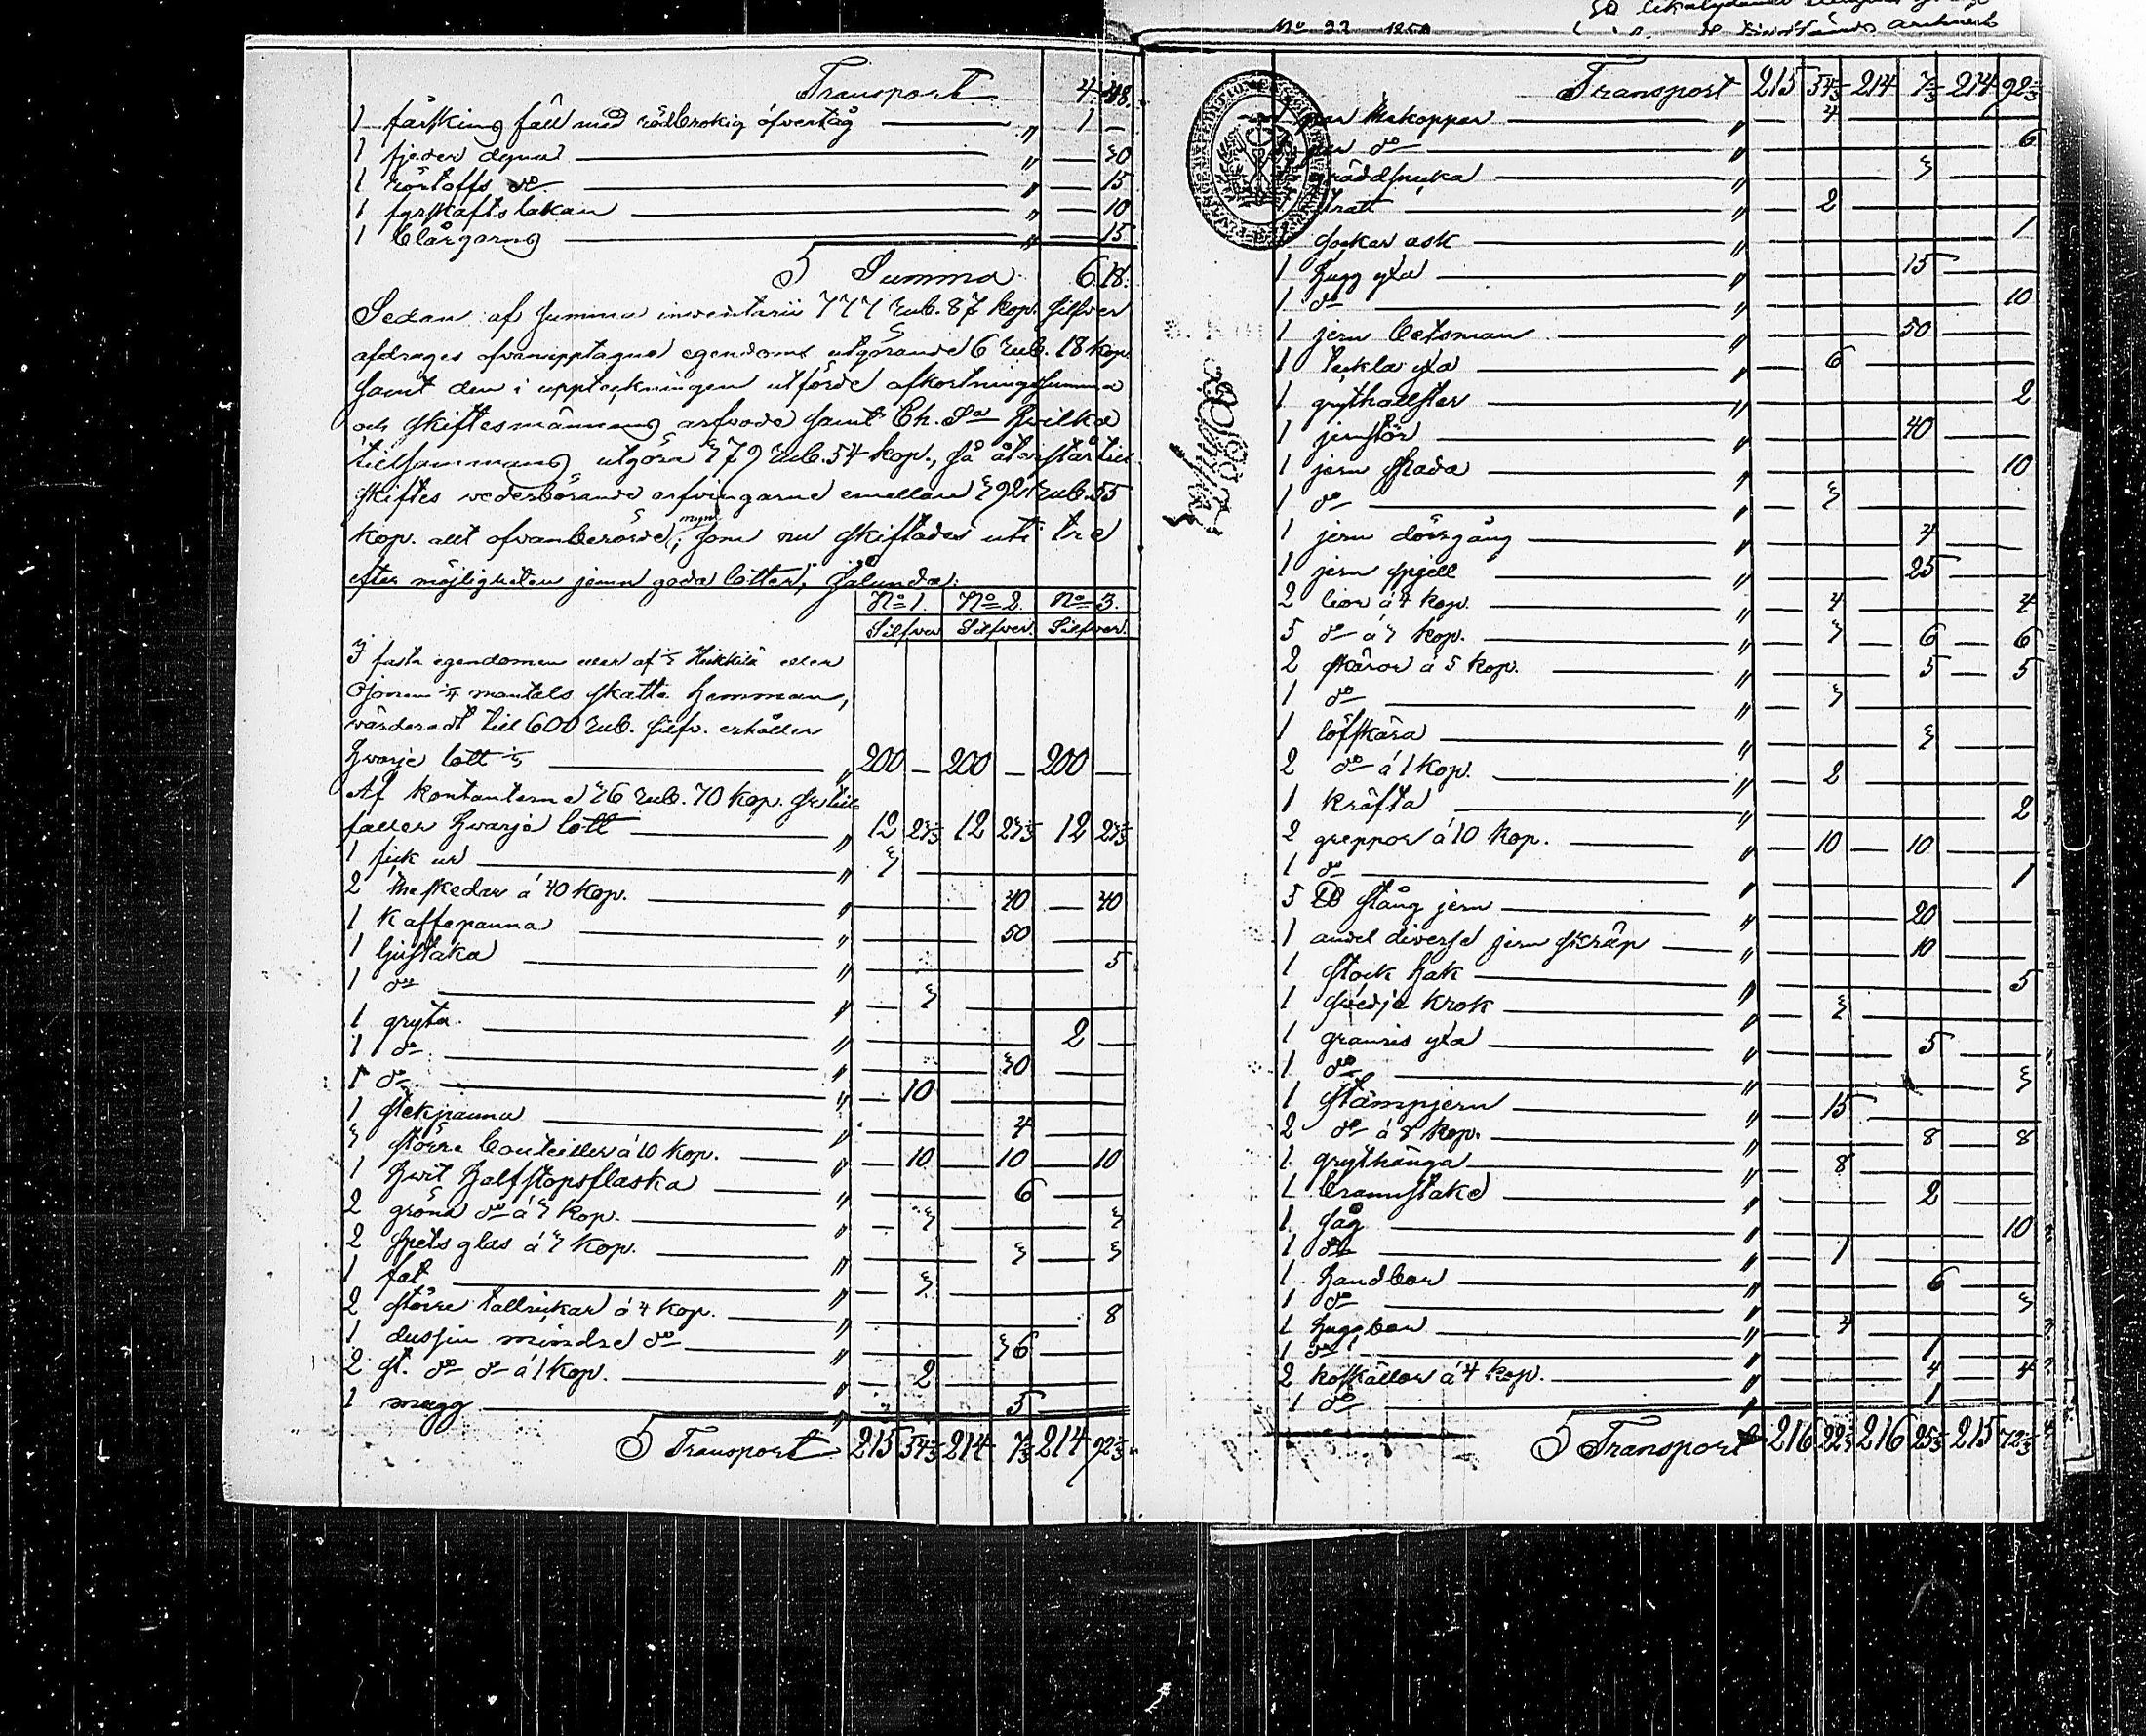 Transport 4 48.
1 fårskins fäll med rödbrokig öfvertåg " 1 —
1 fjeder dyna " — 30
1 rörtoffs do " — 15
1 fyrskafts lakan " — 10
1 blårgarns " — 15
S Summa 6.18.
Sedan af summa inventarii 777 rub. 87 kop. silfver
afdrages ofvanupptagne egendoms utgörande 6 rub. 18 kop.
samt den i uppteckningen utförde afkortningssumma
och skiftesmännens arfvode samt Ch. Sa hvilka
tillsammans utgöra 179 rub. 54 kop., så återstår till
skiftes vederbörande arfvingarne emellan 592 rub. 55
kop. allt ofvanberörde mynt, som nu skiftades uti tre
efter möjligheten jemn goda lotter, sålunda:
No 1. No 2. No 3.
Silfver Silfver. Silfver.
I fasta egendomen eller af Heikkilä eller
Ojonen 1/4 mantals skatte hemman,
värderadt till 600 rub. silfv. erhåller
hvarje lott 1/3 " 200 — 200 — 200 —
Af kontanterne 36 rub. 70 kop. Sr till-
faller hvarje lott " 12 23 1/3 12 23 1/3 12 23 1/3
1 fick ur " 3
2 the skedar á 40 kop. " 40 — 40
1 Kaffepanna " 50
1 ljustaka " 5
1 do " 3
1 gryta " 2 —
1 do " 30
1 do " 10
1 stekpanna " 4
3 större bouteiller á 10 kop. " 10 — 10 — 10
1 hvit halfstopsflaska " 6
2 gröna do á 3 kop. " 3 — 3
2 spets glas á 3 kop. " 3 — 3
1 fat " 3
2 större tallrickar á 4 kop. " 8
1 dussin mindre do " 36
2 st. do do á 1 kop. " 2
1 mugg " 5
S Transport 215 54 1/3 214 7 1/3 214 92 1/3
Transport 215 54 1/3 214 7 1/3 214 92 1/3
1 par thekoppar " 4
1 par do " 6
1 gräddsnicka " 3
1 tratt " 2
1 socker ask " 1
1 hugg yxa " 15
1 do " 10
1 jern betsman " 50
1 teckla yxa " 6
1 grythällster " 2
1 jernstör " 40
1 jern spada " 10
1 do " 3
1 jern dörrgång " 4
1 jern spjell " 25
2 lior á 4 kop. " 4 4
5 do á 3 kop. " 3 — 6 — 6
2 skäror á 5 kop. " 5 5
1 do " 3
1 löfskära " 3
2 do á 1 kop. " 2
1 kräfta " 2
2 greppor á 10 kop. " 10 — 10
1 do " 1
5 ℔ stång jern " 20
1 andel diverse jern skräp " 10
1 stock hak " 5
1 svedje krok " 3
1 granris yxa " 5
1 do " 3
1 stämpjern " 15
2 do á 8 kop. " 8 — 8
1 grythänga " 8
1 brannstake " 2
1 såg " 10
1 do " 1
1 handbor " 6
1 do " 3
1 huggbor " 4
1 do " 1
2 koskällor á 4 kop. " 4 — 4
1 do " 1
S Transport 216 22 1/3 216 25 1/3 215 72 1/3